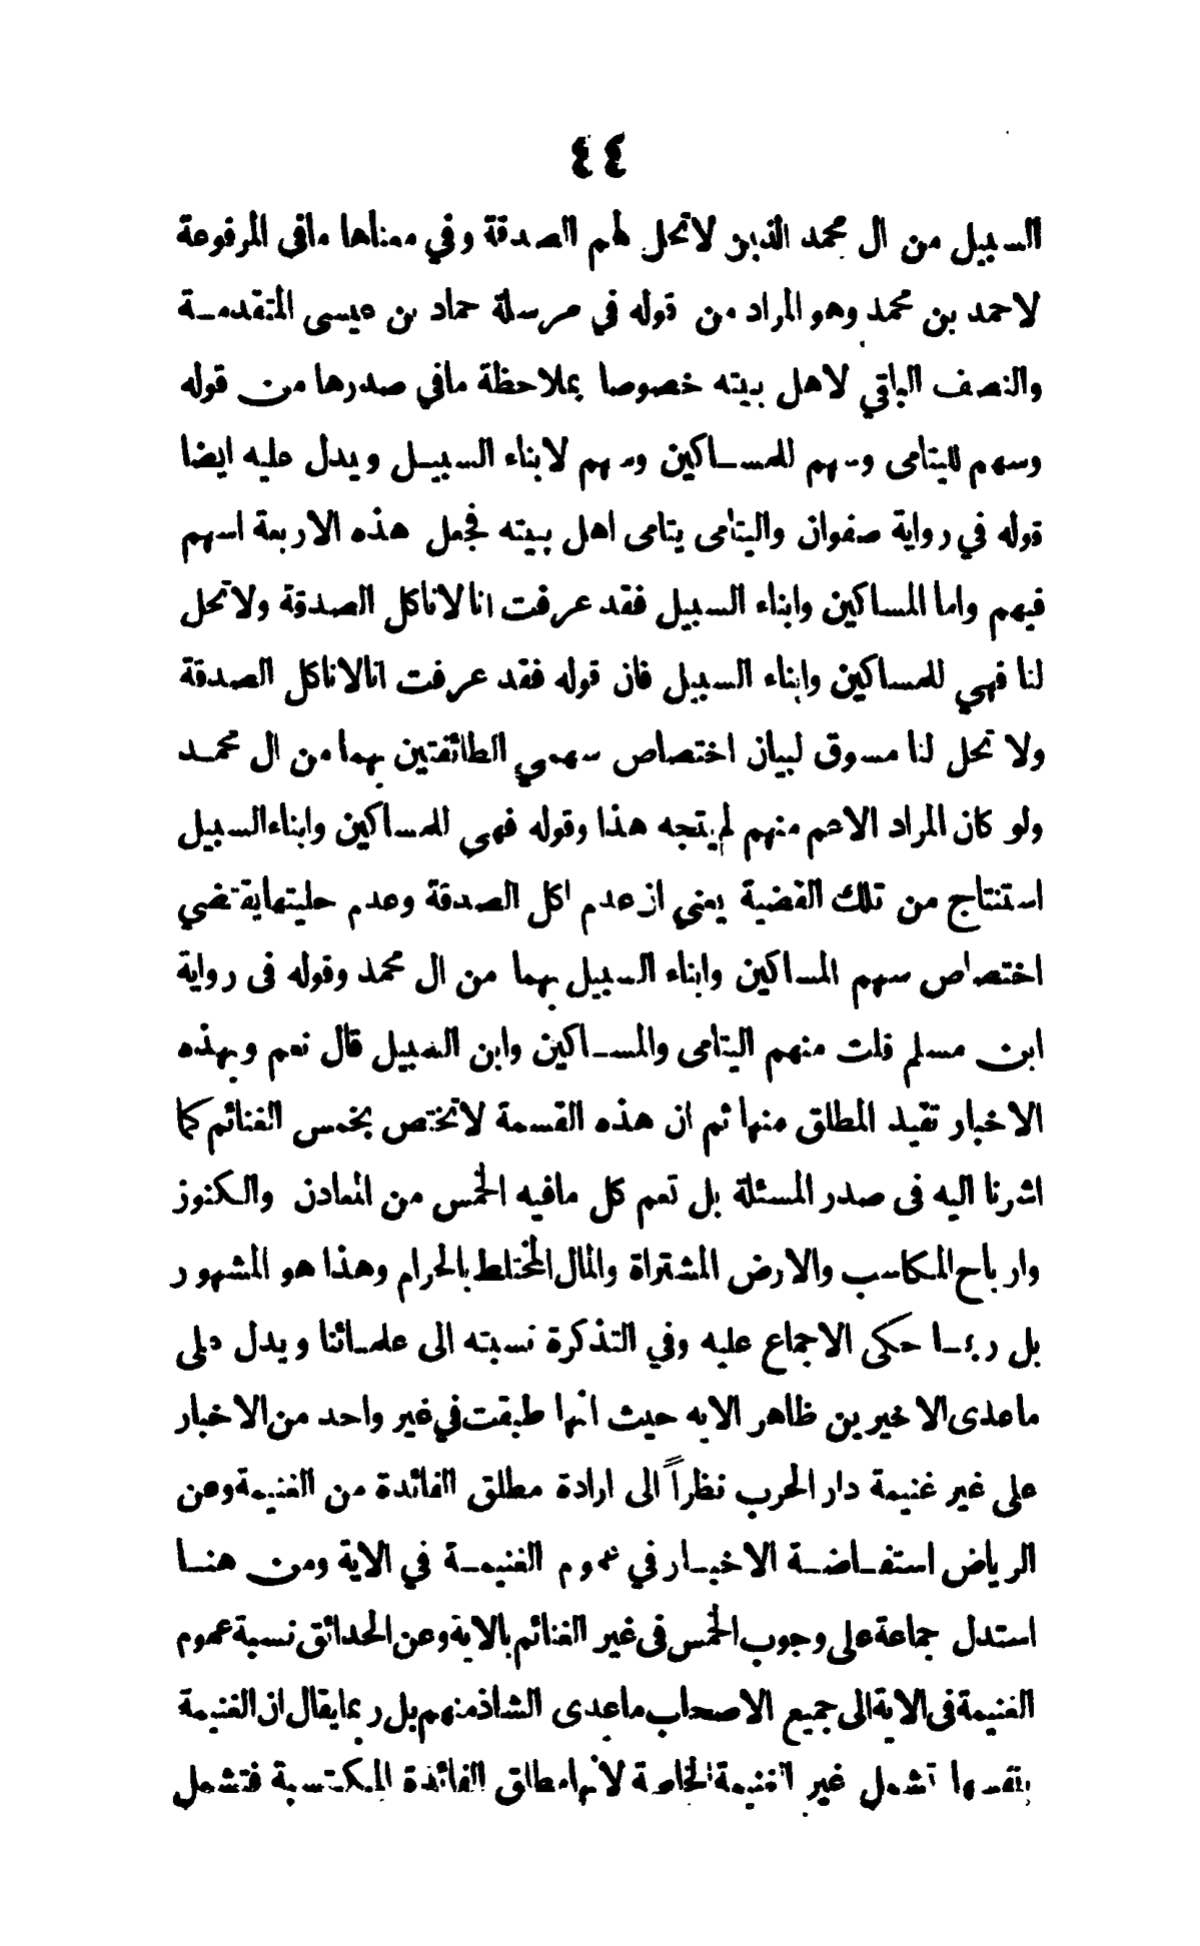 ٤٤
السبيل من ال محمد الذين لاتحل لهم الصدقة وفي معناها مافى المرفوعة
لاحمد بن محمد وهو المراد من قوله في مرسلة حماد بن عيسى المتقدمة
والنصف الباقي لاهل بيته خصوصا بملاحظة مافي صدرها من قوله
وسهم لليتامى وسهم للمساكين وسهم لابناء السبيل ويدل عليه ايضا
قوله في رواية صفوان واليتامى يتامى اهل بيته فجعل هذه الاربعة اسهم
فيهم واما المساكين وابناء السبيل فقد عرفت انا لاناكل الصدقة ولاتحل
لنا فهي للمساكين وابناء السبيل فان قوله فقد عرفت انالاناكل الصدقة
ولا تحل لنا مسوق لبيان اختصاص سهمي الطائفتين بهما من ال محمد
ولو كان المراد الاعم منهم لم يتجه هذا وقوله فهى للمساكين وابناء السبيل
استنتاج من تلك القضية يعني ان عدم اكل الصدقة وعدم حليتها يقتضي
اختصاص سهم المساكين وابناء السبيل بهما من ال محمد وقوله فى رواية
ابن مسلم قلت منهم اليتامى والمساكين وابن السبيل قال نعم وبهذه
الاخبار تقيد المطلق منها ثم ان هذه القسمة لاتختص بخمس الغنائم كما
اشرنا اليه فى صدر المسئلة بل تعم كل مافيه الخمس من المعادن والكنوز
وارباح المكاسب والارض المشتراة والمال المختلط بالحرام وهذا هو المشهور
بل ربما حكى الاجماع عليه وفي التذكرة نسبته الى علمائنا ويدل على
ماعدى الاخيرين ظاهر الايه حيث انها طبقت في غير واحد من الاخبار
على غير غنيمة دار الحرب نظراً الى ارادة مطلق الفائدة من الغنيمة وعن
الرياض استفاضة الاخبار في عموم الغنيمة في الاية ومن هنا
استدل جماعة على وجوب الخمس فى غير الغنائم بالاية وعن الحدائق نسبة عموم
الغنيمة فى الاية الى جميع الاصحاب ماعدى الشاذ منهم بل ربما يقال ان الغنيمة
بنفسها تشمل غير الغنيمة الخاصة لانها مطلق الفائدة المكتسبة فتشمل